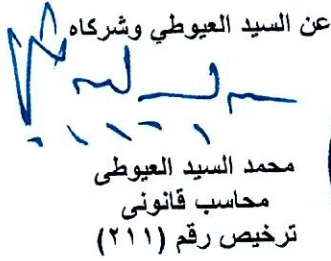 عن السيد العيوطي وشركاه
محمد السيد العيوطى
محاسب قانونى
ترخيص رقم (٢١١)